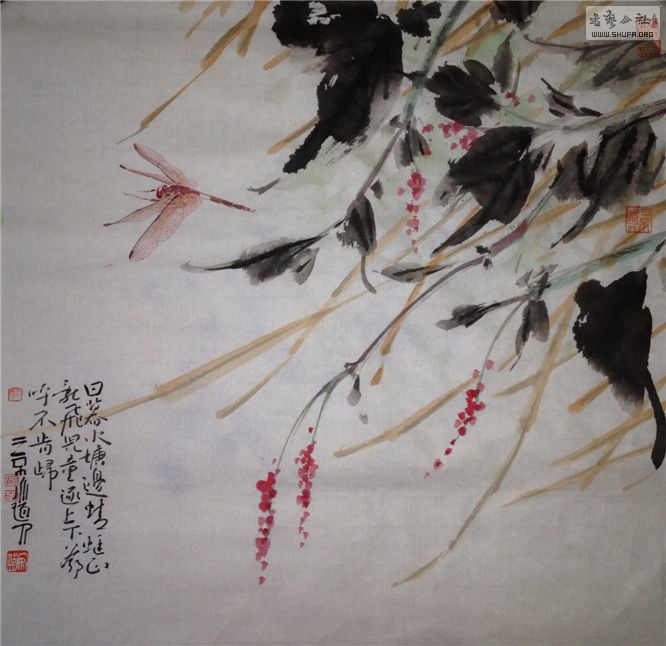 書藝公社
WWW.SHUFA.ORG
日暮水塘邊蜻蜓正
亂飛兒童逐上下
呼不肯歸
道人